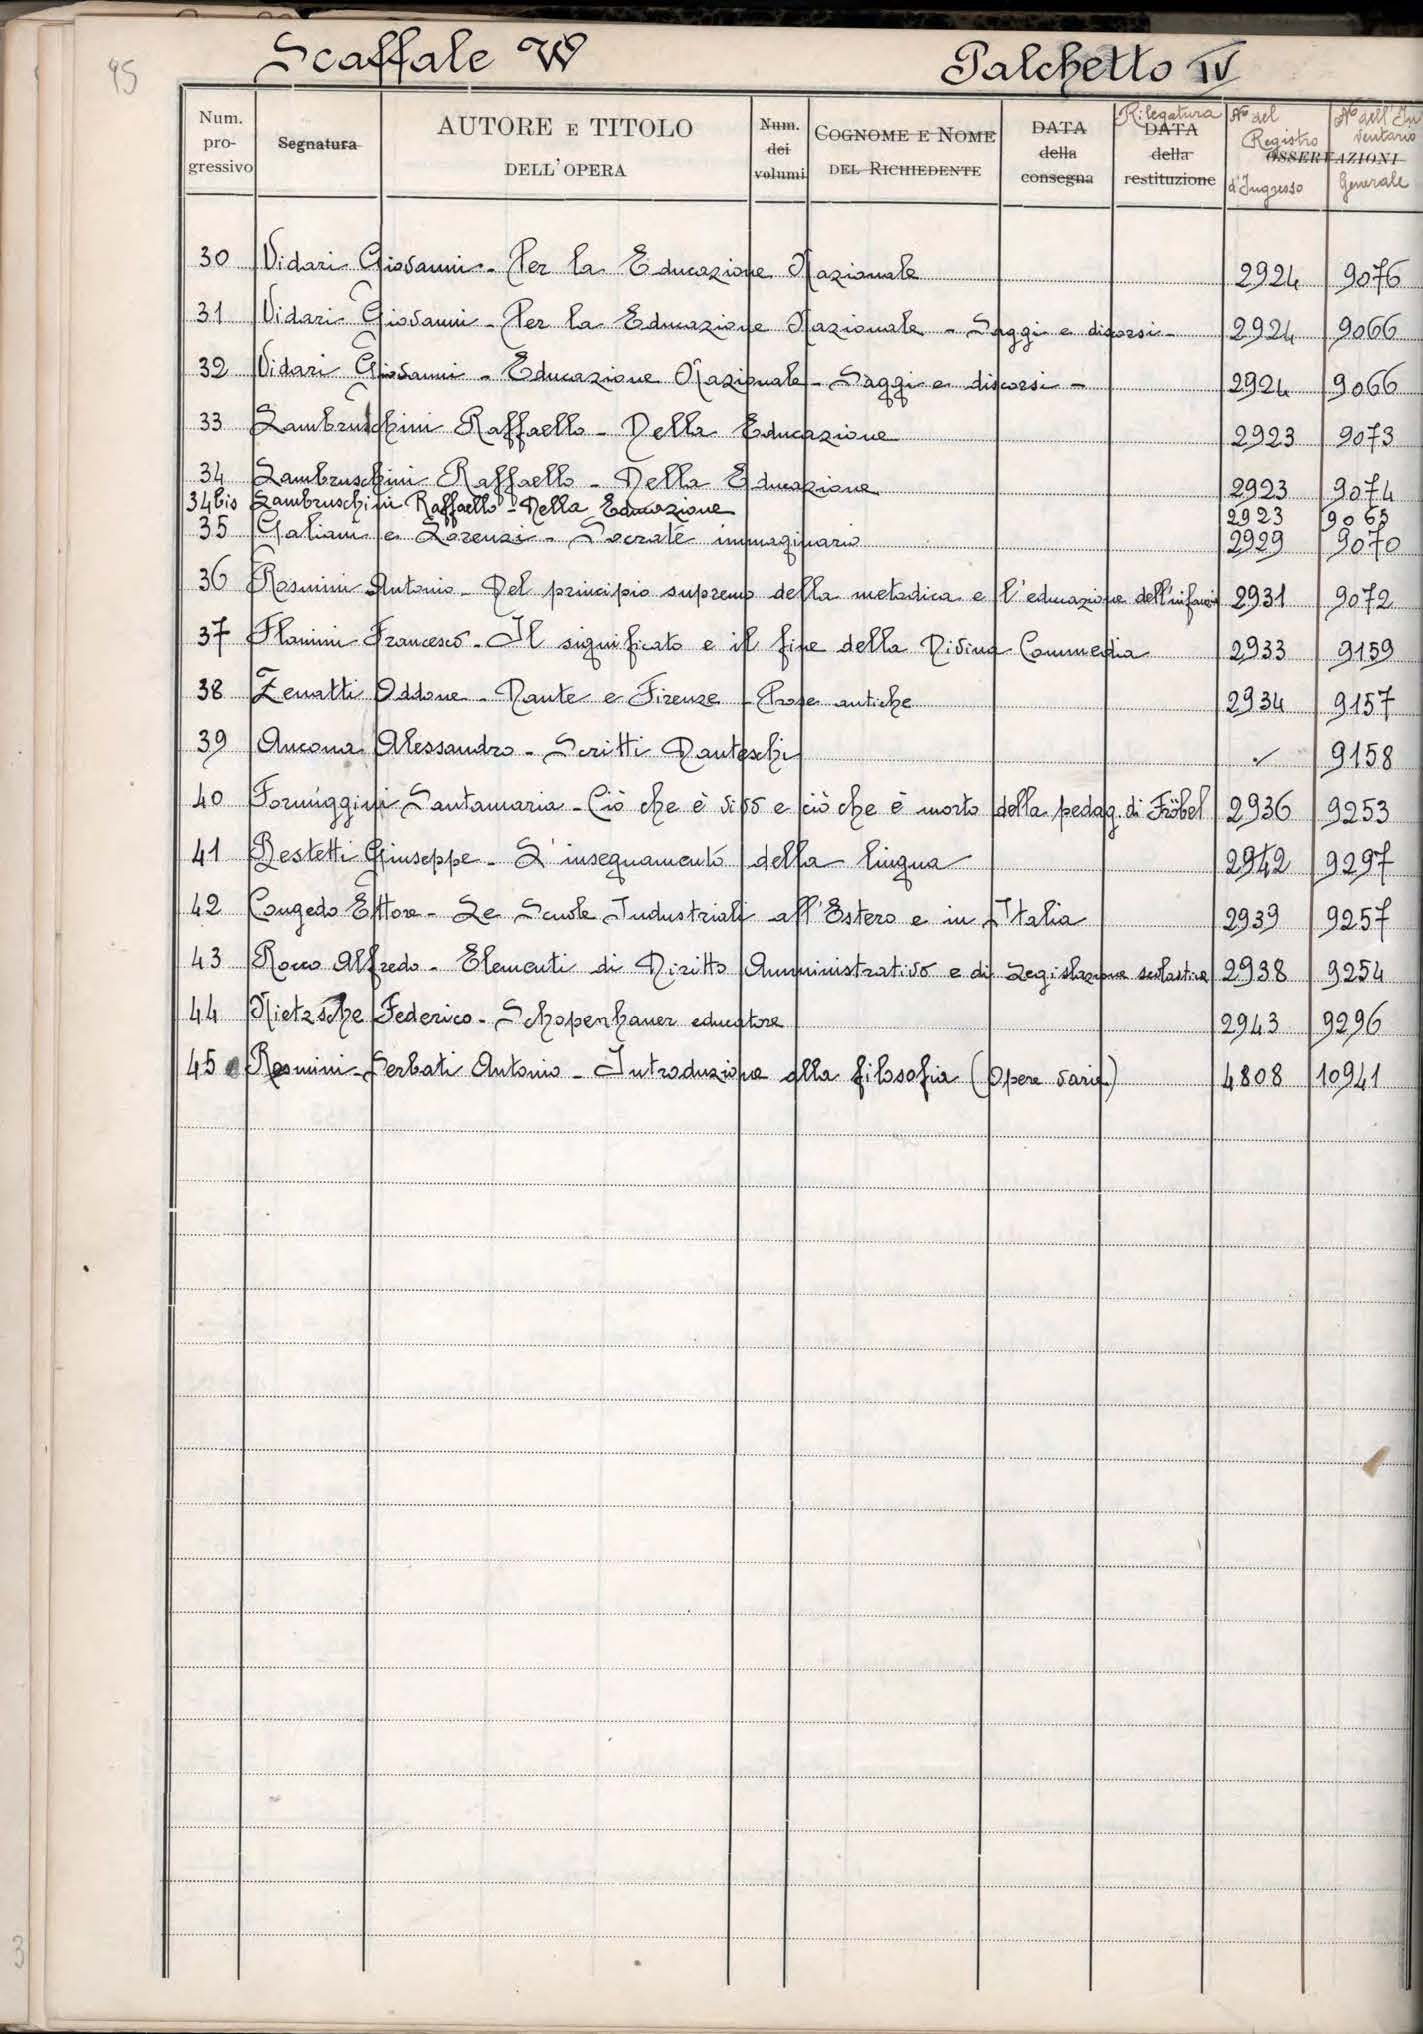 95
Scaffale W Palchetto IV
Num. progressivo Segnatura AUTORE E TITOLO DELL'OPERA Num. dei volumi COGNOME E NOME DEL RICHIEDENTE DATA della consegna Rilegatura DATA della restituzione N° del Registro d'Ingresso OSSERVAZIONI N° dell'Inventario Generale
30 Vidari Giovanni - Per la Educazione Nazionale 2924 9076
31 Vidari Giovanni - Per la Educazione Nazionale - Saggi e discorsi - 2924 9066
32 Vidari Giovanni - Educazione Nazionale - Saggi e discorsi - 2924 9066
33 Lambruschini Raffaello - Della Educazione 2923 9073
34 Lambruschini Raffaello - Della Educazione 2923 9074
34bis Lambruschini Raffaello - Della Educazione 2923 9065
35 Galiani e Lorenzi - Socrate immaginario 2929 9070
36 Rosmini Antonio - Del principio supremo della metodica e l'educazione dell'infanzia 2931 9072
37 Flamini Francesco - Il significato e il fine della Divina Commedia 2933 9159
38 Zenatti Oddone - Dante e Firenze - Prose antiche 2934 9157
39 Ancona Alessandro - Scritti Danteschi ✓ 9158
40 Formiggini Santamaria - Ciò che è vivo e ciò che è morto della pedag. di Fröbel 2936 9253
41 Restetti Giuseppe - L'insegnamento della lingua 2942 9297
42 Congedo Ettore - Le Scuole Industriali all'Estero e in Italia 2939 9257
43 Rocco Alfredo - Elementi di Diritto Amministrativo e di Legislazione scolastica 2938 9254
44 Nietzsche Federico - Schopenhauer educatore 2943 9296
45 Rosmini-Serbati Antonio - Introduzione alla filosofia (Opere varie) 4808 10941
3